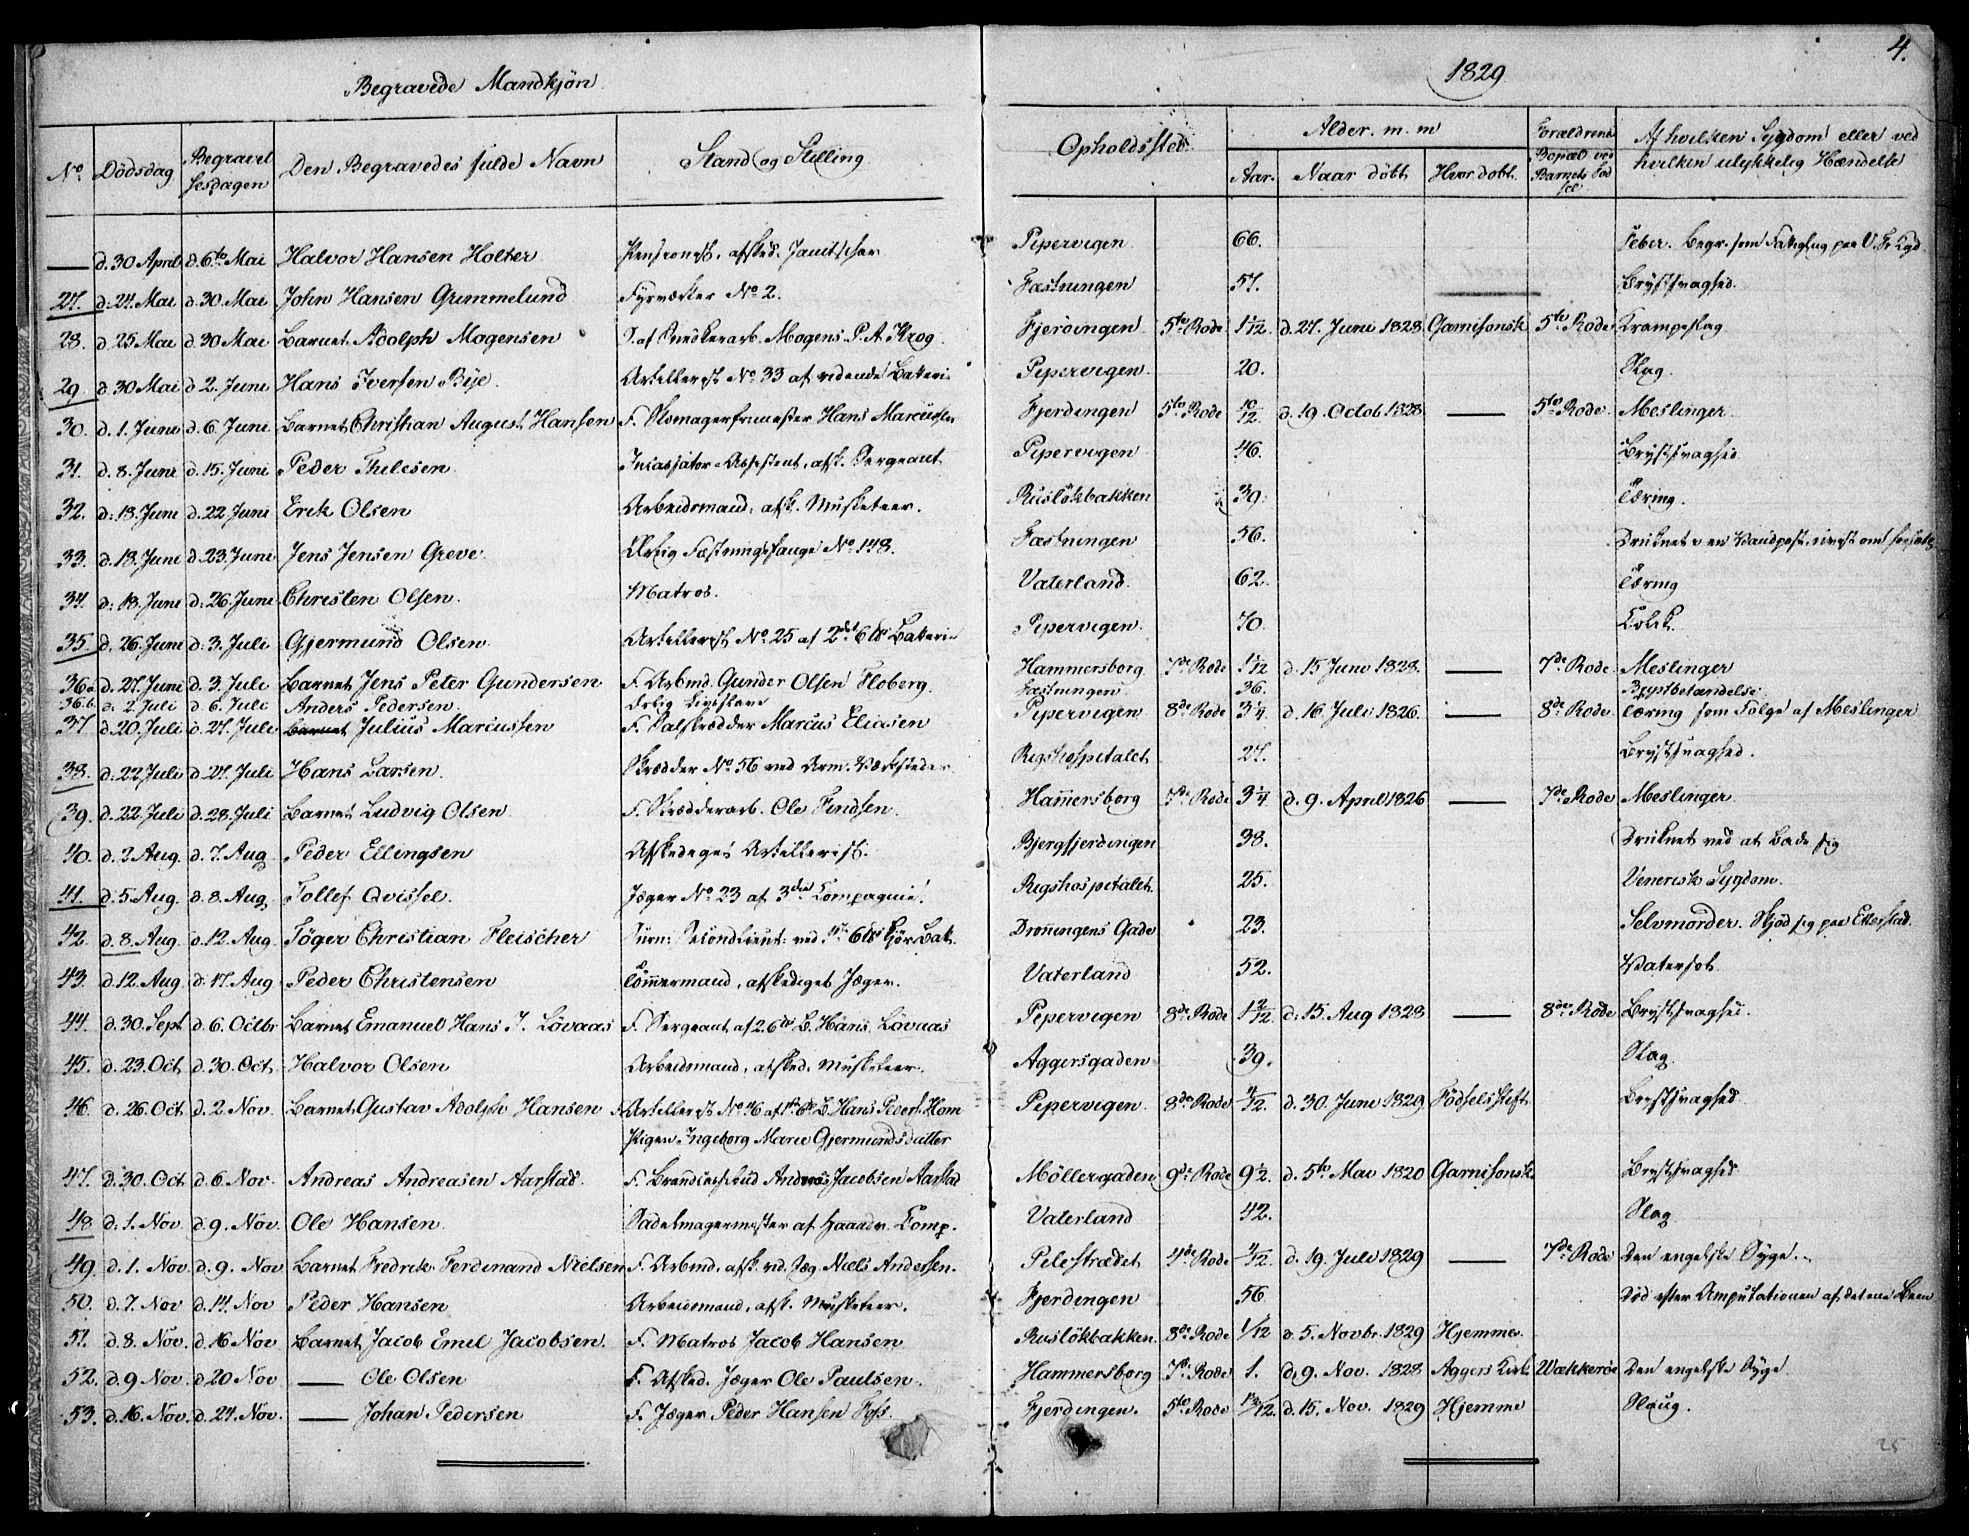 4.
Begravede Mandkjön. 1829
No. Dödsdag Begravelsesdagen Den Begravedes fulde Navn Stand og Stilling. Opholdssted Alder. m. m Aar. Naar döbt Hvor döbt. Forældrenes Bopæl ved Barnets Födsel Af hvilken Sygdom eller ved hvilken ulykkelig Hændelse
— d. 30 April d. 6te Mai Halvor Hansen Holter Pensionist, afsked. Janitschar Pipervigen 66. Feber. Begr. som Fattig
27. d. 24. Mai d. 30. Mai John Hansen Grimmelund Fyrværker No 2. Fæstningen 57. Brystsvaghed.
28. d. 25 Mai d. 30 Mai Barnet Adolph Mogensen S. af Snedkerarb. Mogens P. A. Krog. Fjerdingen 5te Rode 1 1/12 d. 27. Juni 1828 Garnisonsk. 5te Rode Krampeslag
29. d. 30 Mai d. 2. Juni Hans Iversen Bye. Artillerist No 33 af ridende Batteri Pipervigen. 20. Slag.
30. d. 1. Juni d. 6. Juni Barnet Christian August Hansen F. Skomagersvend Hans Marcussen Fjerdingen 5te Rode 10/12. d. 19. Octob 1828 — 5te Rode. Meslinger.
31. d. 8. Juni d. 15. Juni Peder Thilesen Incassator-Assistent, afsk. Sergeant Pipervigen 46. Brystsvaghed
32. d. 18. Juni d. 22 Juni Erik Olsen Arbeidsmand. afsk. Musketeer. Rusløkbakken 39. Tæring.
33. d. 18. Juni d. 23. Juni Jens Jensen Greve. Ærlig Fæstningsfange No 148. Fæstningen 56. Druknet
34. d. 18. Juni d. 26. Juni Christen Olsen. Matros. Vaterland 62. Tæring
35. d. 26. Juni d. 3. Juli Gjermund Olsen Artillerist No 25 af 2det 6℔s Batteri Pipervigen. 70. Colik.
36a d. 27. Juni d. 3. Juli Barnet Jens Peter Gundersen F. Arbmd. Gunder Olsen Floberg. Hammersborg 7de Rode 1 1/12 d. 15 Juni 1828. — 7de Rode. Meslinger
36.b. d. 2. Juli d. 6. Juli Anders Pedersen. Ærlig Livsslave Fæstningen 36. Brystbetændelse.
37 d. 20. Juli d. 27. Juli Barnet Julius Marcussen F. Marcus Eliasen Pipervigen 8de Rode 3 1/4. d. 16 Juli 1826. — 8de Rode. Tæring som Følge af Meslinger
38. d. 22 Juli d. 27. Juli Hans Larsen. Skrædder No 56 ved Arm. Værksteder Rigshospitalet 27. Brystsvaghed.
39. d. 22 Juli d. 28. Juli Barnet Ludvig Olsen F. Skrædderarb. Ole Findsen. Hammersborg 7de Rode 3 1/4. d. 9. April 1826 — 7de Rode Meslinger.
40. d. 3 Aug. d. 7. Aug Peder Ellingsen Afskediget Artillerist. Bjergfjerdingen 38. Druknet ved at bade sig
41. d. 5 Aug. d. 8. Aug. Tollef Qvissel. Jæger No 23 af 3die Compagnie. Rigshospitalet. 25. Venerisk Sygdom.
42. d. 8. Aug. d. 12. Aug. Töger Christian Fleischer Secondlieut. ved 6℔s kjör. Bat. Dronningens Gade 23. Selvmorder. Skjød sig paa Etterstad.
43. d. 12. Aug. d. 17. Aug Peder Christensen Tömmermand, afskediget Jæger. Vaterland 52. Vatersot.
44. d. 30. Sept. d. 6. Octbr. Barnet Emanuel Hans J. Lövaas F. Sergeant af 2. 6℔s B. Hans Lövaas Pipervigen 8de Rode 1 2/12. d. 15. Aug 1828 — 8de Rode Brystsvaghed.
45. d. 23. Oct. d. 30. Oct. Halvor Olsen Arbeidsmand, afsked. Musketeer. Aggersgaden 39. Slag.
46. d. 26. Oct. d. 2. Nov. Barnet Gustav Adolph Hansen F. Artillerist No 46 af 1ste 6℔ B. Hans Peders. Hom Pipervigen. 8de Rode 4/12. d. 30. Juni 1829 Födselsstift. Brystsvaghed
Pigen Ingeborg Marie Gjermundsdatter
47. d. 30. Oct. d. 6. Nov. Andreas Andreasen Aarstad. F. Andreas Jacobsen Aarstad Möllergaden 9de Rode 9 1/2. d. 5te Mai 1820 Garnisonsk. Brystsvaghed.
48 d. 1. Nov. d. 9. Nov. Ole Hansen. Sadelmagermester af Haandv. Comp. Vaterland 42. Slag
49. d. 1. Nov. d. 9. Nov. Barnet Fredrik Ferdinand Nielsen F. Arbmd. afsk. rid. Jæg. Niels Andersen. Pelestrædet 4de Rode 4/12. d. 19. Juli 1829 — 7de Rode Den engelske Syge.
50. d. 7. Nov d. 14. Nov Peder Hansen Arbeidsmand, afsk. Musketeer. Fjerdingen 56 Död efter Amputationen af det ene Been
51. d. 8. Nov. d. 16 Nov Barnet Jacob Emil Jacobsen. F. Matros Jacob Hansen Rusløkbakken. 8de Rode 1/12 d. 5. Novbr. 1829 Hjemme.
52. d. 9 Nov. d. 20 Nov — Ole Olsen F. Afsked. Jæger Ole Paulsen. Hammersborg 7de Rode 1. d. 9. Nov. 1828 Aggers Kirke Wækkeröe Den engelske Syge
53. d. 16. Nov. d. 24. Nov. — Johan Pedersen F. Jæger Peder Hansen Foss. Fjerdingen. 5te Rode d. 15. Nov. 1829 Hjemme Slaug.
25